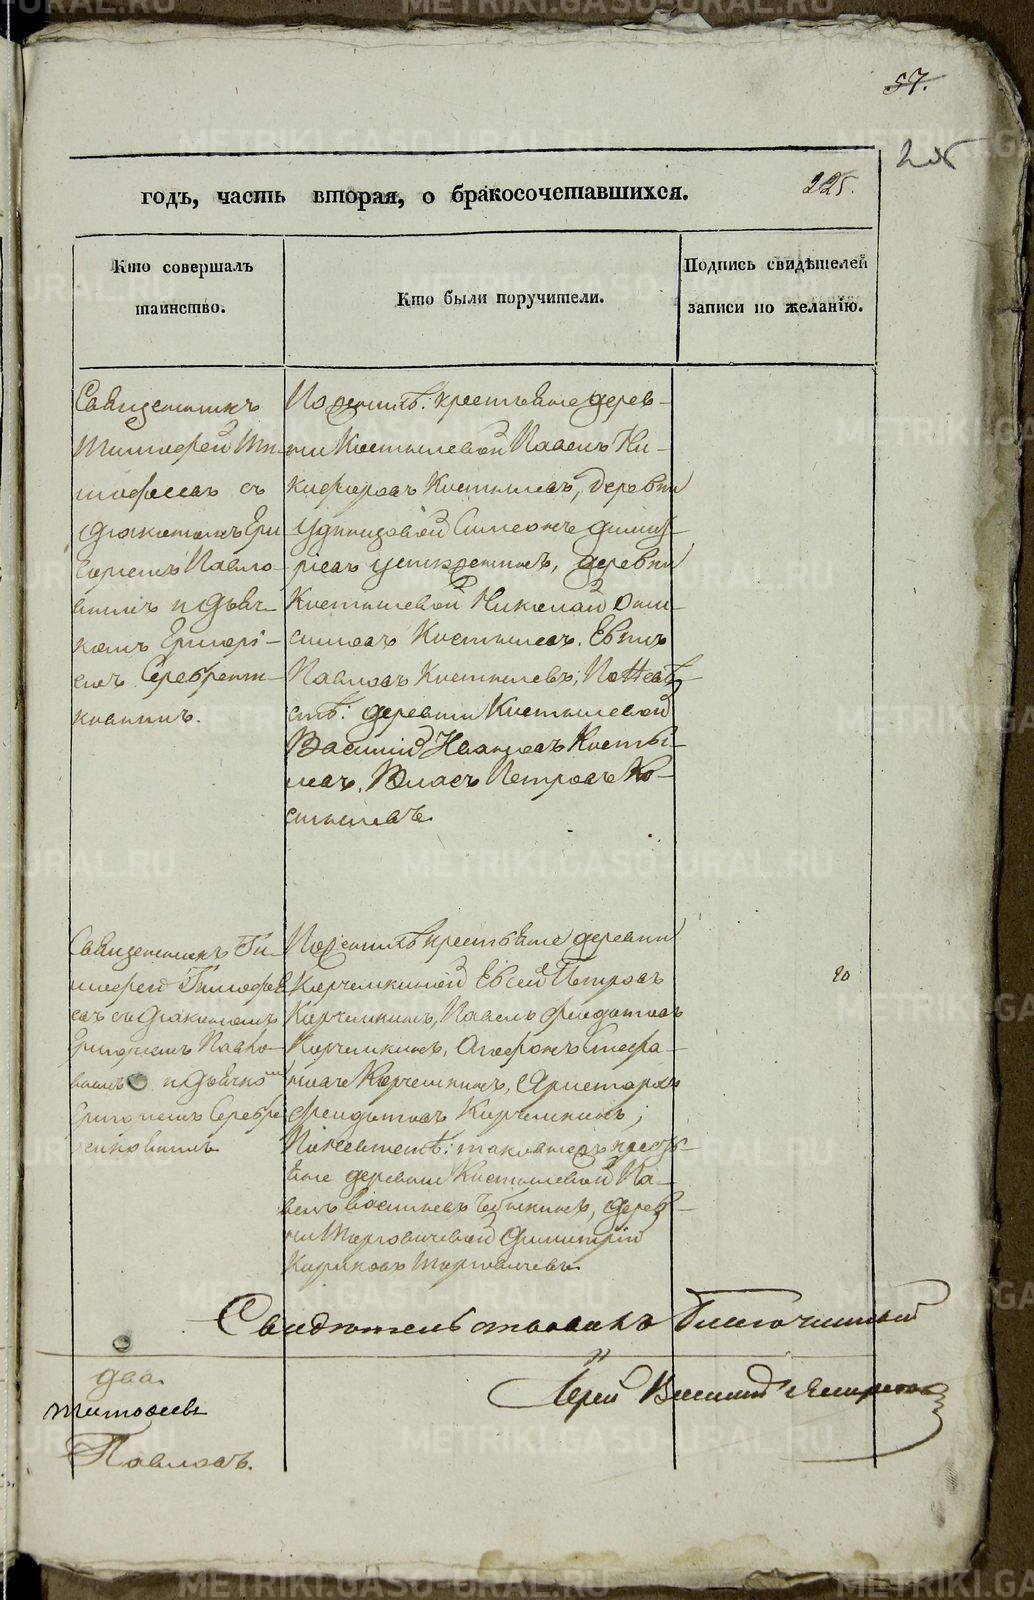 57.
225.
годъ, часть вторая, о бракосочетавшихся.
Кто совершалъ
таинство.
Кто были поручители.
Подпись свидѣтелей
записи по желанію.
Священникъ
Тимофей Ти-
мофеевъ съ
діакономъ Гри
горіемъ Павло-
вымъ и дьяч-
комъ Григорі-
емъ Серебрен-
никовымъ.
По женихѣ: крестьяне дерев-
ни Костылевой Павелъ Ни-
кифоровъ Костылевъ, деревни
Симеонъ Димит-
ріевъ деревни
Костылевой Николай Они-
симовъ Костылевъ,
Павловъ Костылевъ; По невѣ-
стѣ: деревни Костылевой
Василій Ивановъ Косты-
левъ, Власъ Петровъ Ко-
стылевъ.
Священникъ Ти-
мофей Тимофѣе
въ съ діакономъ
Григоріемъ Павло-
вымъ и дьячкомъ
Григоріемъ Серебре
никовымъ
По женихѣ крестьяне деревни
Корчемкиной Евсей Петровъ
Корчемкинъ, Павелъ Федотовъ
Корчемкинъ, Агафонъ Стефа-
новъ Корчемкинъ, Аристархъ
Федотовъ Корчемкинъ;
По невѣстѣ: крестья-
не деревни Костылевой Па-
велъ Васильевъ дерев-
ни Димитрій
20
Свидѣтельствовалъ Благочинный
Іерей Василій
два
Тимофеевъ
Павловъ.
METRIKI.GASO-URAL.RU